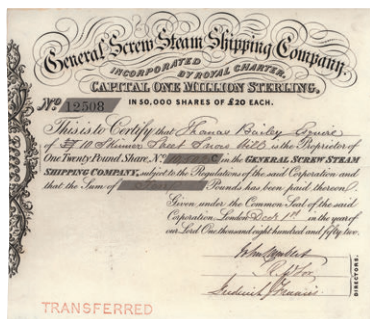 General Screw Steam Shipping Company.
INCORPORATED
BY ROYAL CHARTER.
CAPITAL ONE MILLION STERLING,
IN 50,000 SHARES OF £20 EACH.
No 12508
This is to Certify that Thomas Bailey Esquire
of 10 Skinner Street Snow Hill is the Proprietor of
One Twenty Pound Share, No. in the GENERAL SCREW STEAM
SHIPPING COMPANY, subject to the Regulations of the said Corporation and
that the Sum of Pounds has been paid thereon.
Given under the Common Seal of the said
Corporation, London Decr 1st in the year of
our Lord One thousand eight hundred and fifty two.
DIRECTORS.
TRANSFERRED